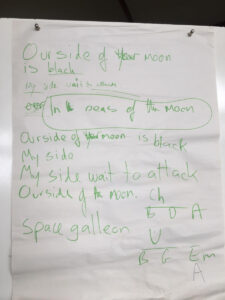 Our side of moon
is black.
My side wait to attack
In seas of the moon
Our side of moon is black
My side
My side wait to attack
Our side of the moon. Ch
B D A
Space galleon U
B G Em
A